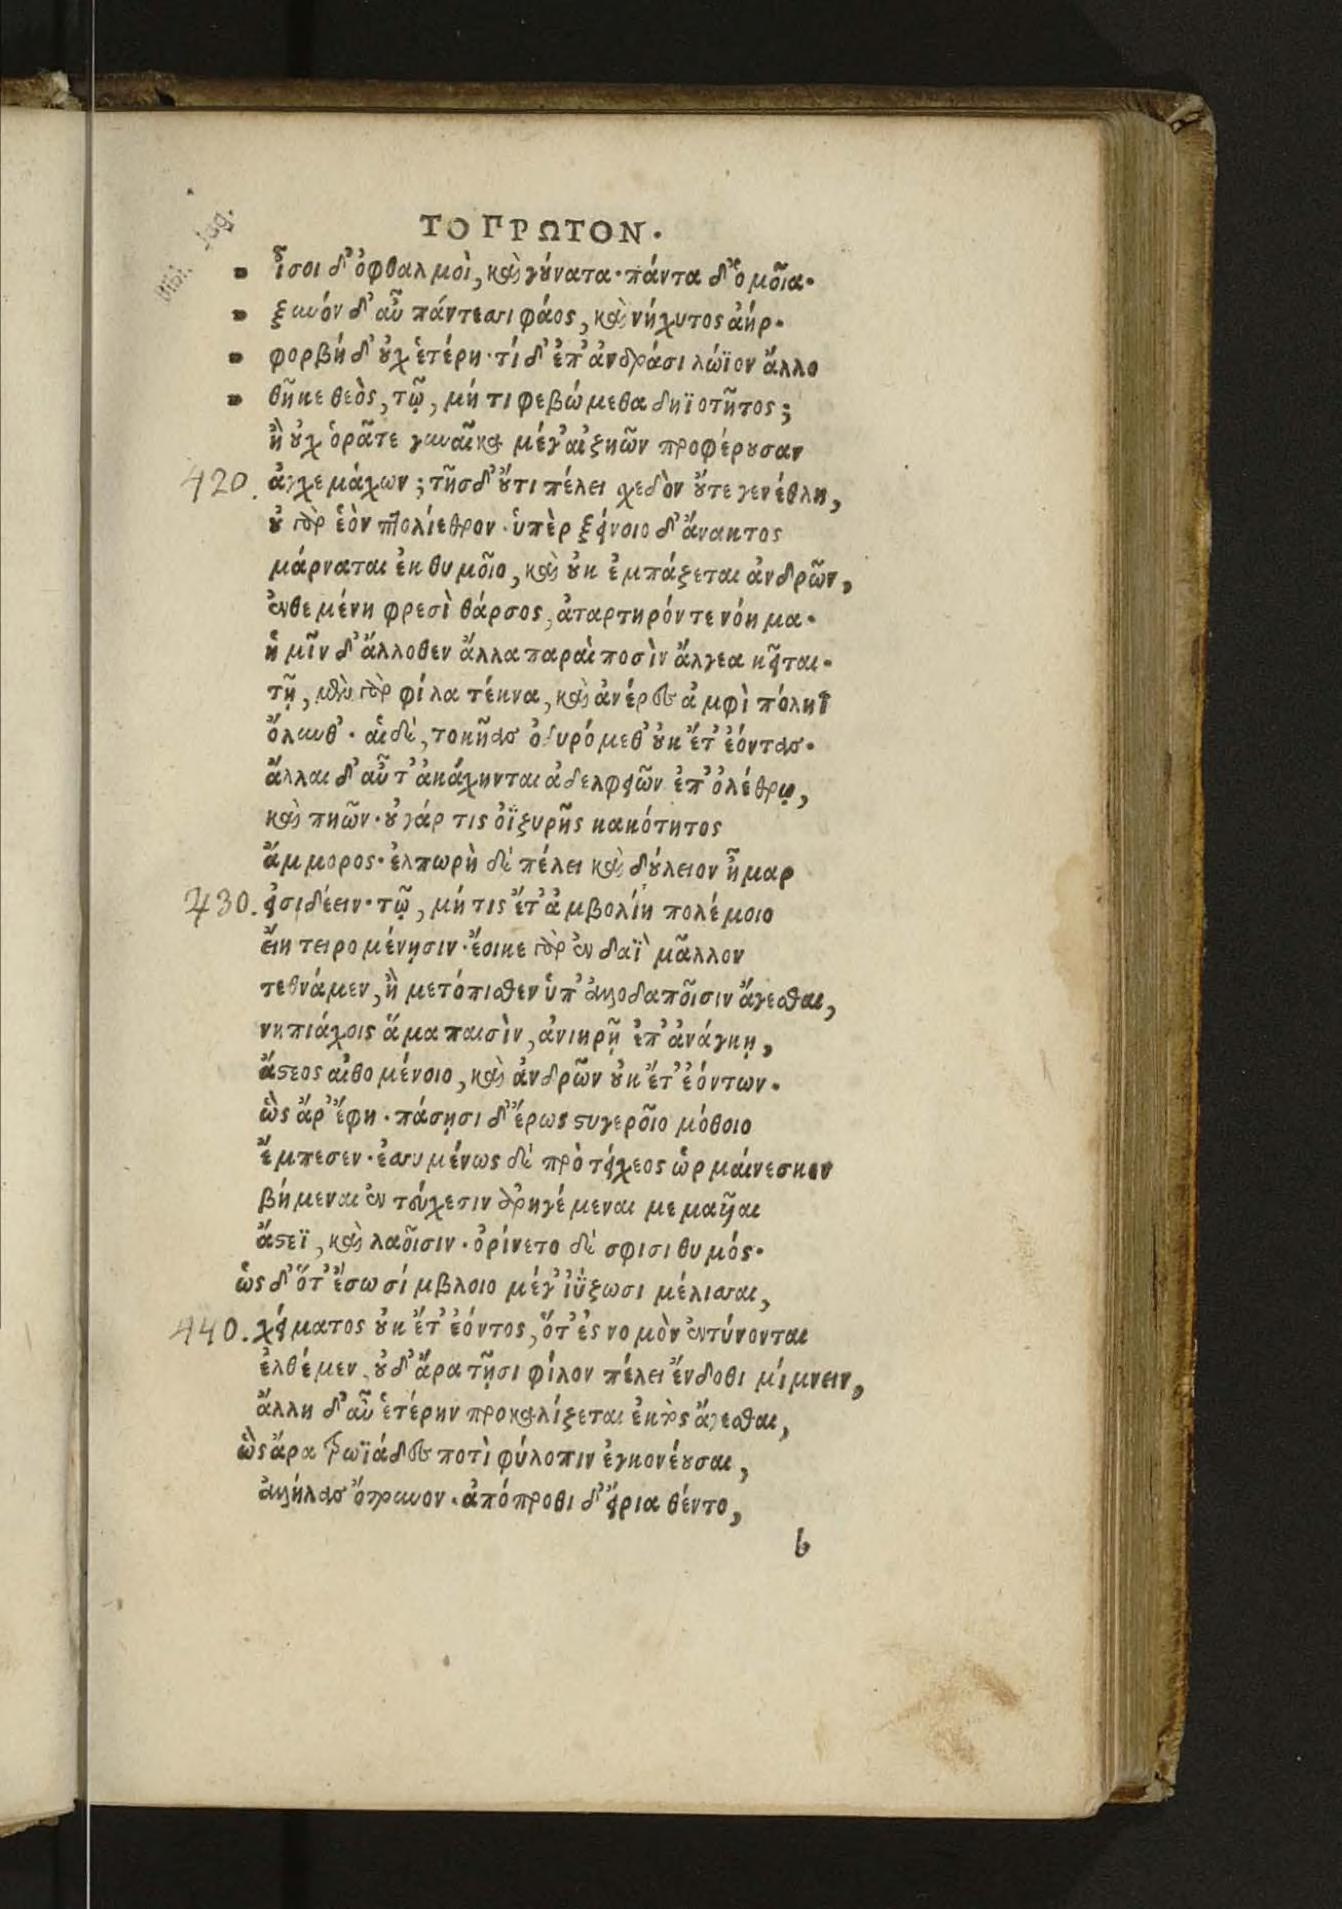 ΤΟ ΠΡΩΤΟΝ.
Bibl. Jag.
" ἶσοι δ' ὀφθαλμοὶ, καὶ γούνατα· πάντα δ' ὁμοῖα·
" ξυνόν δ' αὖ πάντεσσι φάος, καὶ νήχυτος ἀήρ·
" φορβή δ' οὐχ ἑτέρη· τί δ' ἐπ' ἀνδράσι λώϊον ἄλλο
" θῆκε θεὸς, τῷ, μή τι φεβώμεθα δηϊοτῆτος;
ἢ οὐχ ὁρᾶτε γυναῖκα μέγ' αἰζηῶν προφέρουσαν
420. ἀγχεμάχων; τῆσδ' οὔτι πέλει σχεδὸν οὔτε γενέθλη,
οὐ γὰρ ἑὸν πτολίεθρον· ὑπὲρ ξείνοιο δ' ἄνακτος
μάρναται ἐκ θυμοῖο, καὶ οὐκ ἐμπάζεται ἀνδρῶν,
ἐνθεμένη φρεσὶ θάρσος, ἀταρτηρόν τε νόημα·
ἡμῖν δ' ἄλλοθεν ἄλλα παραὶ ποσὶν ἄλγεα κεῖται·
τῇ, μὲν γὰρ φίλα τέκνα, καὶ ἀνέρες ἀμφὶ πόληϊ
ὄλουνθ'· αἱ δὲ, τοκῆας ὀδυρόμεθ' οὐκ ἔτ' ἐόντας·
ἄλλαι δ' αὖτ' ἀκάχηνται ἀδελφειῶν ἐπ' ὀλέθρῳ,
καὶ πηῶν· οὐ γάρ τις ὀϊζυρῆς κακότητος
ἄμμορος· ἐλπωρὴ δὲ πέλει καὶ δούλειον ἦμαρ
430. εἰσιδέειν· τῷ, μή τις ἔτ' ἀμβολίη πολέμοιο
εἴη τειρομένησιν· ἔοικε γὰρ ἐν δαῒ μᾶλλον
τεθνάμεν, ἢ μετόπισθεν ὑπ' ἀλλοδαποῖσιν ἄγεσθαι,
νηπιάχοις ἅμα παισὶν, ἀνιηρῇ ἐπ' ἀνάγκῃ,
ἄστεος αἰθομένοιο, καὶ ἀνδρῶν οὐκ ἔτ' ἐόντων·
ὣς ἄρ' ἔφη· πάσῃσι δ' ἔρως στυγεροῖο μόθοιο
ἔμπεσεν· ἐσσυμένως δὲ πρὸ τείχεος ὡρμαίνεσκον
βήμεναι ἐν τεύχεσιν ἀρηγέμεναι μεμαυῖαι
ἄστεϊ, καὶ λαοῖσιν· ὀρίνετο δέ σφισι θυμός·
ὡς δ' ὅτ' ἔσω σίμβλοιο μέγ' ἰΰζωσι μέλισσαι,
440. χείματος οὐκ ἔτ' ἐόντος, ὅτ' ἐς νομὸν ἐντύνονται
ἐλθέμεν, οὐδ' ἄρα τῇσι φίλον πέλει ἔνδοθι μίμνειν,
ἄλλη δ' αὖ ἑτέρην προκαλίζεται ἐκτὸς ἄγεσθαι,
ὣς ἄρα τρωϊάδες ποτὶ φύλοπιν ἐγκονέουσαι,
ἀλλήλας ὄτρυνον· ἀπόπροθι δ' εἴρια θέντο,
b